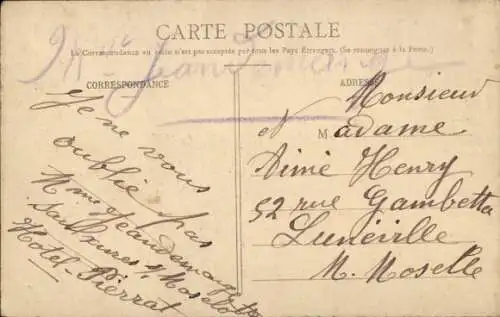 CARTE POSTALE
La Correspondance au recto n'est pas acceptée par tous les Pays Étrangers. (Se renseigner à la Poste.)
Mme Jeandemange
CORRESPONDANCE
ADRESSE
Je ne vous
oublie pas
Mme Jeandemange
Saulxures s/ Moselotte
Hotel-Pierrat
Monsieur
et Madame
Aimé Henry
52 rue Gambetta
Lunéville
M. Moselle